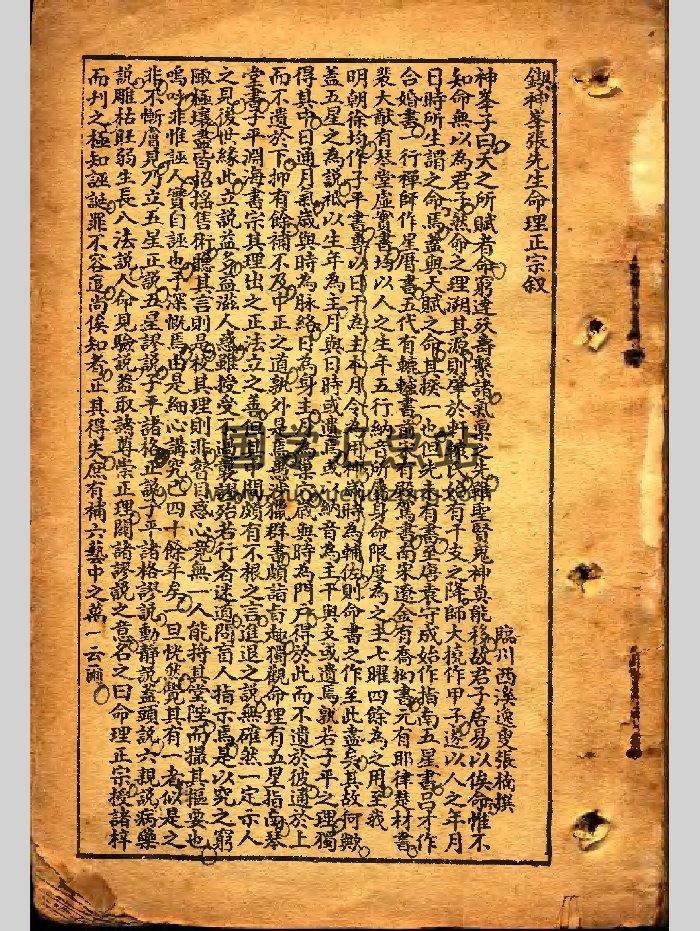 鍥神峯張先生命理正宗叙
臨川西溪逸叟張楠撰
神峯子曰天之所賦者命窮達殀壽繫諸氣稟之生雖聖賢鬼神莫能移故君子居易以俟命惟不
知命無以為君子然命之理溯其源則肇於軒轅氏始有干支之降師大撓作甲子遂以人之年月
日時所生謂之命焉蓋與天賦之命其揆一也但先未有書至唐袁守成始作指南五星書呂才作
合婚書一行禪師作星曆書五代有轆轤書前有殿駕書南宋遼金有喬拗書元有耶律楚材書
裴大猷有琴堂虛實書均以人之生年五行納音所屬身命限度為之主七曜四餘為之用至我
明朝徐均作子平書專以日干為主本月令為用神歲時為輔佐則命書之作至此盡矣其故何歟
蓋五星之為說祗以生年為主月與日時或遺焉或以納音為主干與支或遺焉孰若子平之理獨
得其中日通月氣歲與時為脉絡日為身主月為巢穴歲與時為門戶得於此而不遺於彼適於上
而不遺於下抑有餘補不及中正之道孰外是焉無奈獵群書頗詣旨趣獨觀命理有五星指南琴
堂書子平淵海書宗其理出之正法立之善但二書之間頗有不根之言進退之說無確然一定示人
之見後世緣此立說益多益滋人惑雖授受之遞靈迷殆若行者迷道問盲人指示焉是以究之窮
陬極壤盡皆招搖售術聽其言則是校其理則非瞽目惑心竟無一人能將其堂陛而撮其樞要也
嗚呼非惟誣人實自誣也予深慨焉由是細心講究已四十餘年矣一旦恍然覺其有一者似是之
非不慚膚見乃立五星正說五星謬說子平諸格正說子平諸格謬說動靜說蓋頭說六親說病藥
說雕枯旺弱生長八法說人命見驗說蓋取諸尊崇正理闢諸謬說之意名之曰命理正宗授諸梓
而刋之極知誣誕罪不容逭尚俟知者正其得失庶有補六藝中之萬一云爾
国学汇思站
www.guoxuehuizhan.com